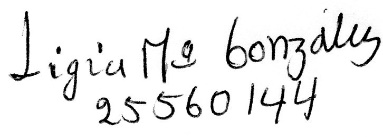 Ligia Mª González
25560144